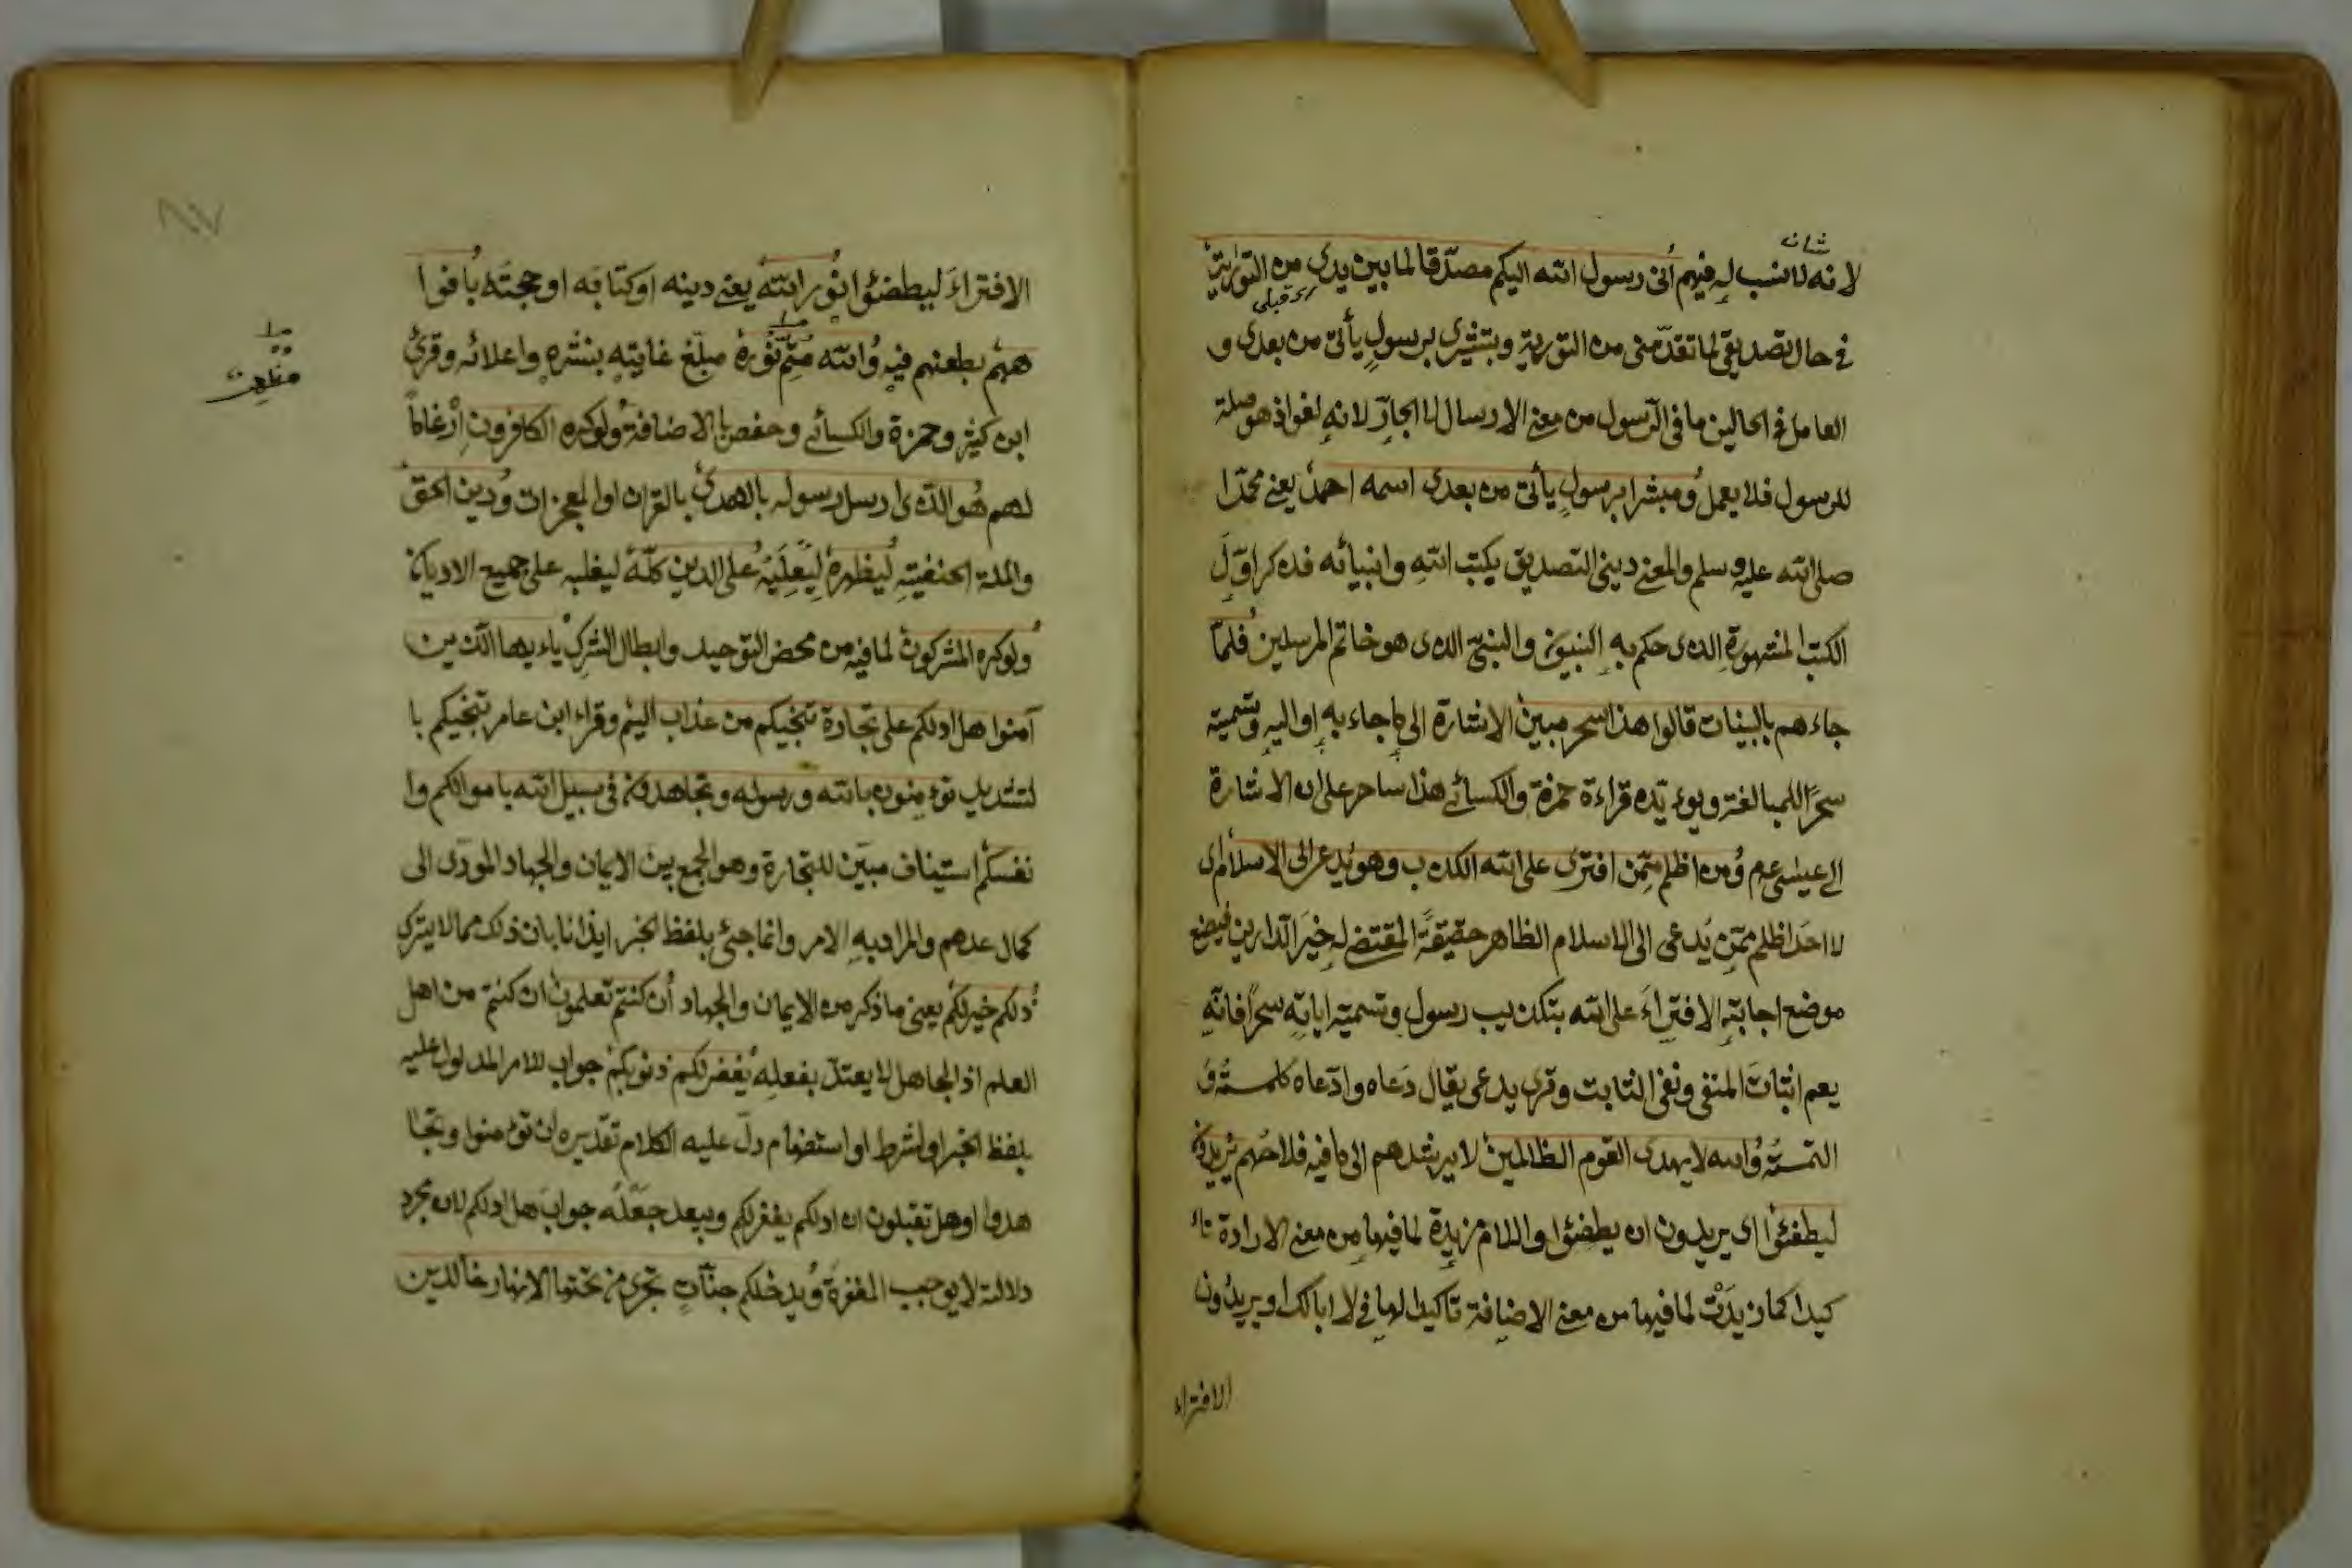 شانه
لانه لا نسب له فيهم أنى رسول الله اليكم مصدّقا لما بين يدى من التورية
قبلى
في حال تصديقى لما تقدّمنى من التورية وبتبشيرى برسولٍ يأتى من بعدى و
العامل في الحالين ما فى الرّسول من معنى الارسال لا الجارّ لانه لغو اذ هو صلة
للرسول فلا يعمل ومبشرا برسولٍ يأتى من بعدى اسمه احمد يعنى محمّدا
صلى الله عليه وسلم والمعنى دينى التصديق بكتب الله وانبيائه فذكر اوّلَ
الكتب المشهورة الذى حكم به النبيون والنبىّ الذى هو خاتم المرسلين فلمّا
جاءهم بالبينات قالوا هذا سحر مبين الاشارة الى ما جاء به او اليه وتسميته
سحرًا للمبالغة ويوءيّده قراءة حمزة والكسائى هذا ساحر على ان الاشارة
الى عيسى عم ومن اظلم ممّن افترى على الله الكذب وهو يدعى الى الاسلام اى
لا احدَ اظلم ممّن يُدعى الى الاسلام الظاهر حقيقةً المقتضى له خيرَ الدارين فيضع
موضع اجابته الافتراءَ على الله بتكذيب رسوله وتسمية اياته سحرًا فانّه
يعم اثباتَ المنفى ونفى الثابت وقرى يدعى يقال دَعاه وادّعاه كلمسه و
التمسه والله لا يهدى القوم الظالمين لا يرشدهم الى ما فيه فلاحهم يريدون
ليطفئوا اى يريدون ان يطفئوا واللام مزيدة لما فيها من معنى الارادة تاء
كيدا كما زيدَتْ لما فيها من معنى الاضافة تاكيدا لها في لا ابا لك او يريدون
الافتراء
الافتراءَ ليطفئوا نُور الله يعنى دينه او كتابه او حجته بافوا
ههم بطعنهم فيه والله متمّ نوره مبلّغ غايته بنشره واعلائه وقرئ
ابن كثير وحمزة والكسائى وحفص بالاضافة ولو كره الكافرون اِرْغامًا
لهم هو الذى ارسل رسوله بالهدى بالقران او المعجزات ودين الحق
والملة الحنفية ليظهره ليُعلِيَهُ على الدين كلّه ليغلبه على جميع الاديان
ولو كره المشركون لما فيه من محض التوحيد وابطال الشرك ياءيها الذين
آمنوا هل ادلكم على تجارة تنجيكم من عذاب اليم وقراء ابن عامر تنجيكم با
لتشديد توءمنون بالله ورسوله وتجاهدون فى سبيل الله باموالكم وا
نفسكم استيناف مبيّن للتجارة وهو الجمع بين الايمان والجهاد المودّى الى
كمال عدهم والمراد به الامر وانما جئ بلفظ الخبر ايذانا بان ذلك مما لا يترك
ذلكم خير لكم يعنى ما ذكر من الايمان والجهاد أن كنتم تعلمون ان كنتم من اهل
العلم اذ الجاهل لا يعتدّ بفعله يغفر لكم ذنوبكم جواب للامر المدلول عليه
بلفظ الخبر او لشرط او استفهام دلّ عليه الكلام تقديره ان توءمنوا وتجا
هدوا او هل تقبلون ان ادلكم يغفر لكم ويبعد جعلُه جوابَ هل ادلكم لان مجرد
دلالته لا يوجب المغفرةَ ويدخلكم جنّاتٍ تجرى من تحتها الانهار خالدين